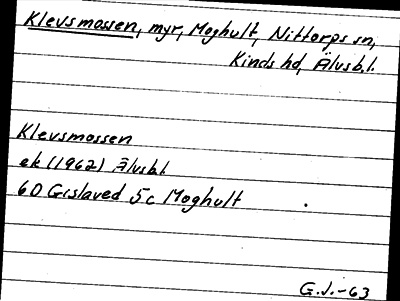 Klevsmossen, myr, Moghult, Nittorps sn,
Kinds hd, Älvsb.l.
Klevsmossen
ek (1962) Älvsb.l
6D Gislaved 5c Moghult
G.J.-63